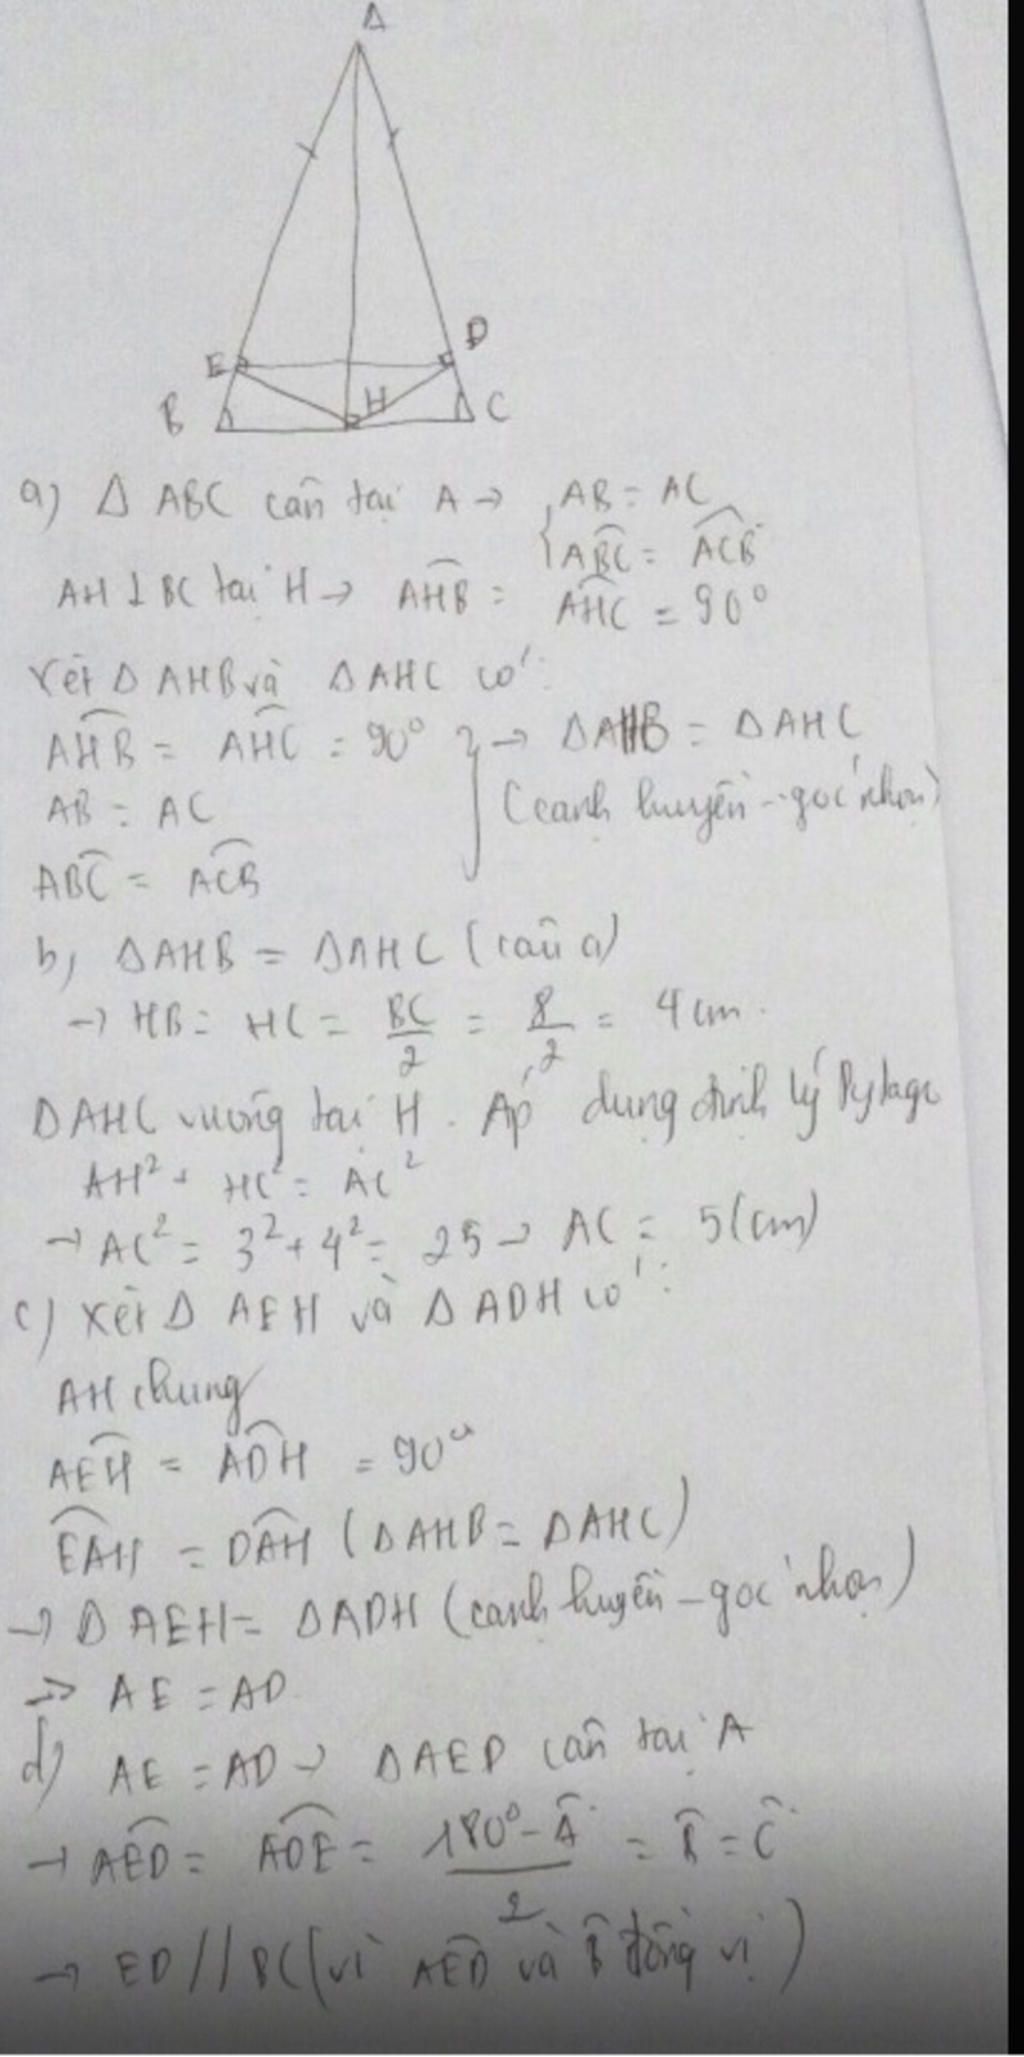 A
E
D
B
H
C
a) Δ ABC cân tại A → { AB = AC
ABC = ACB
AH ⊥ BC tại H → AHB = AHC = 90°
Xét Δ AHB và Δ AHC có:
AHB = AHC = 90° } → ΔAHB = ΔAHC
AB = AC (cạnh huyền - góc nhọn)
ABC = ACB
b, ΔAHB = ΔAHC (câu a)
→ HB = HC = BC/2 = 8/2 = 4 cm.
ΔAHC vuông tại H. Áp dụng định lý Pytago
AH² + HC² = AC²
→ AC² = 3² + 4² = 25 → AC = 5 (cm)
c) Xét Δ AEH và Δ ADH có:
AH chung
AEH = ADH = 90°
EAH = DAH (ΔAHB = ΔAHC)
→ Δ AEH = ΔADH (cạnh huyền - góc nhọn)
=> AE = AD
d) AE = AD → ΔAED cân tại A
→ AED = ADE = 180° - Â / 2 = B̂ = Ĉ
→ ED // BC (vì AED và B̂ đồng vị)